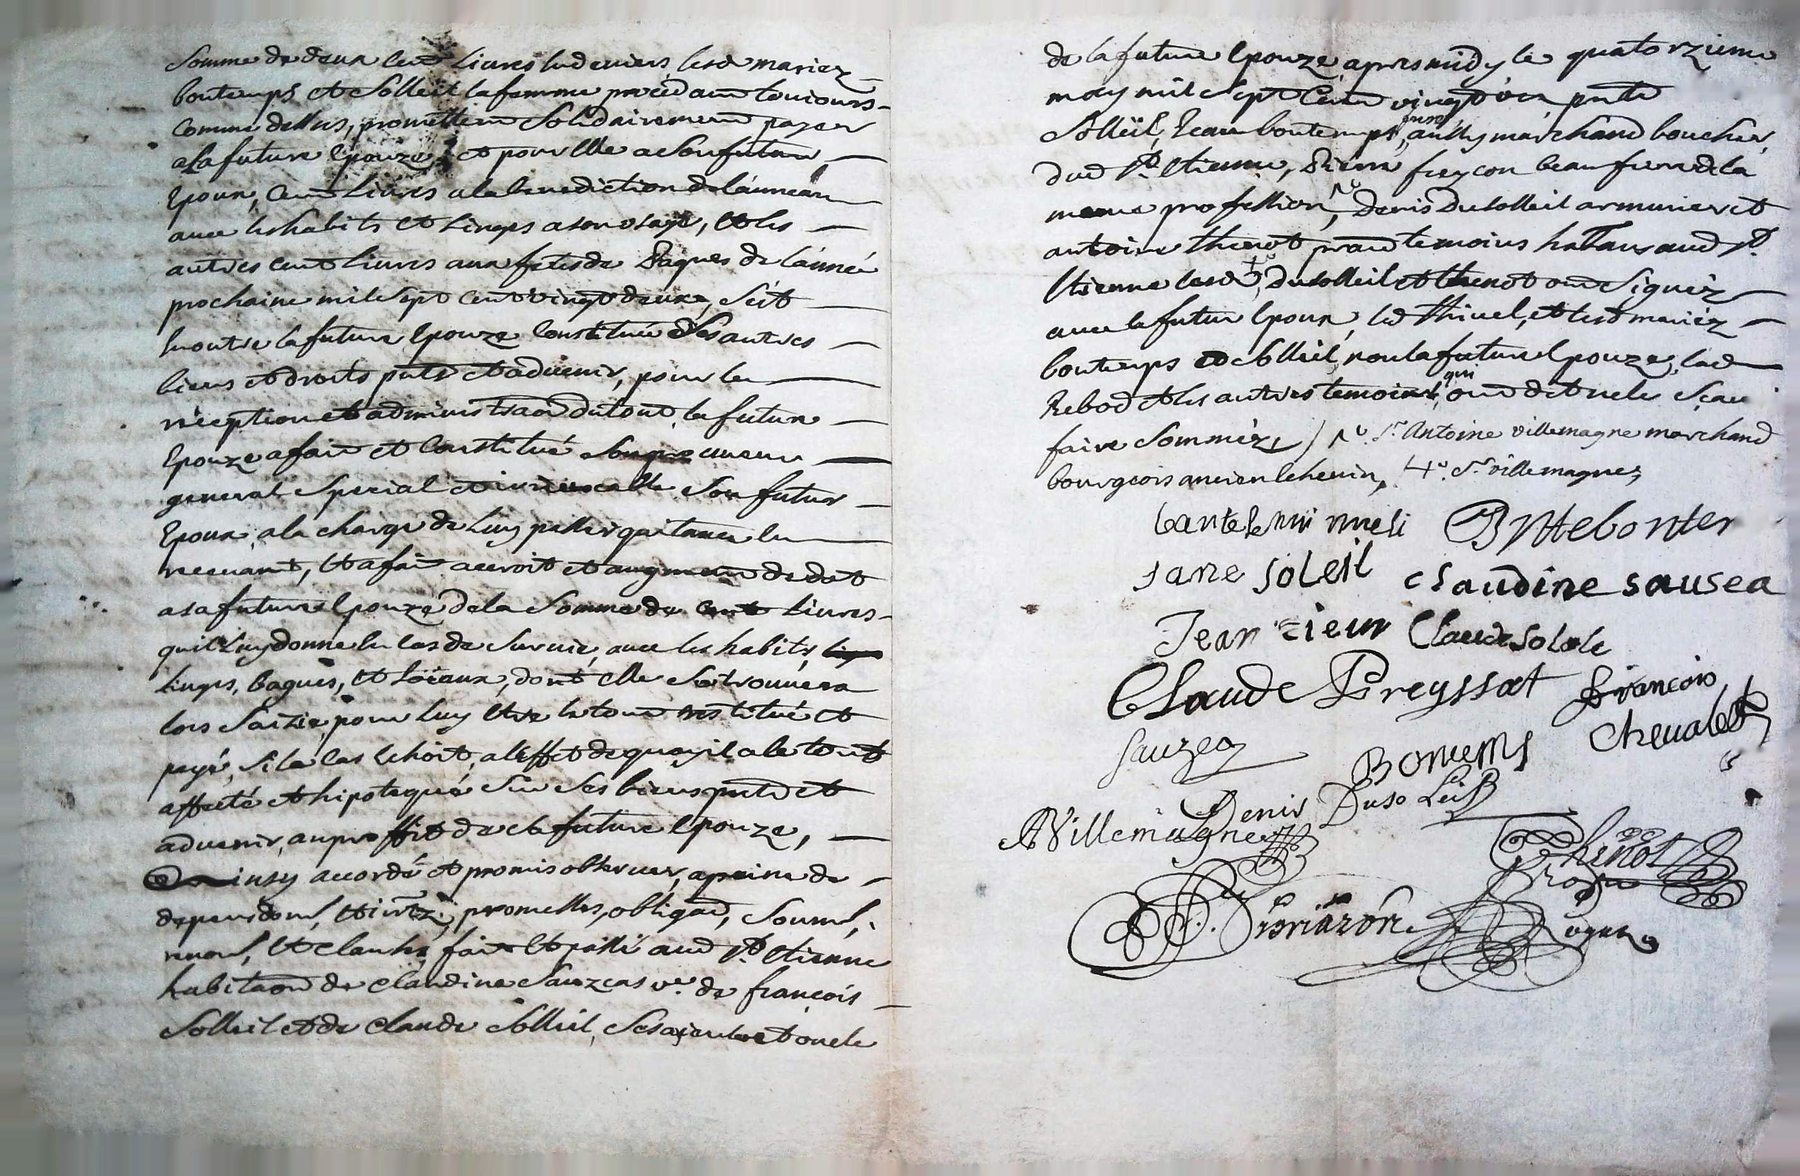 Somme de deux cent Livres lesd mariez
bontemps et Solleil sa femme procedant toujours
comme dessus, promettent Solidairement payer
a la future Epouze, et pour Elle a Son futur
Epoux, Cent Livres a la benediction de l'anneau
avec les habits et Linges a son usage, et les
autres cent Livres aux fetes de Paques de l'année
prochaine mil Sept cent vingt deux, Se st
en outre la future Epouze Constitué Ses autres
biens et droits pnts et advenir, pour la
reception et administraon du tout, la future
Epouze a fait et Constitué Son procureur
general Special et irrevocable Son futur
Epoux a la charge de Luy passer quitance en
recevant, Et a fait accroit et augment de dot
a sa future Epouze de la Somme de Cent Livres
qu'il Luy donne en cas de Survie, avec les habits
Linges, bagues, et Joiaux, dont elle Se trouvera
lors Saizie, pour luy etre le tout restitué et
payé, Si le cas echoit, a l'effet de quoy il a le tout
affecté et hipotequé Sur Ses biens pnts et
advenir, au proffit de la future Epouze,
insy accordé et promis observer, a peine de
depens dom, et intz. promesses, obligaon, Soumi,
renon, et clauses fait et passé aud St. Etienne
habitaon de Claudine Sauzeas ve. de françois
Solleil et de Claude Solleil, Ses ayeule et oncle
de la future Epouze apres midy le quatorzieme
may mil Sept Cent vingt un pnts
Solleil, Jean bontemps, aussy marchand boucher,
dud St. Etienne, Pierre freycon beau frere de la
meme profession, Denis Dusolleil armurier et
antoine thinot praon temoins habitans aud St.
Etienne lesd Dusolleil et thinot ont Signéz
avec le futur Epoux, led thivel, et lesd mariéz
bontemps et Solleil, non la future Epouze, lad
Rebod et les autres temoins qui ont dit ne le Scavoir
faire Sommez, / Sr. Antoine villemagne marchand
bourgeois ancien Echevin, Sr. villemagne,
sane soleil claudine sausea
Jean Claude Solele
Claude Freyssat François
Sauzea Bontems Chevalet
Denis Dusoleil
AVillemagne
Thinot